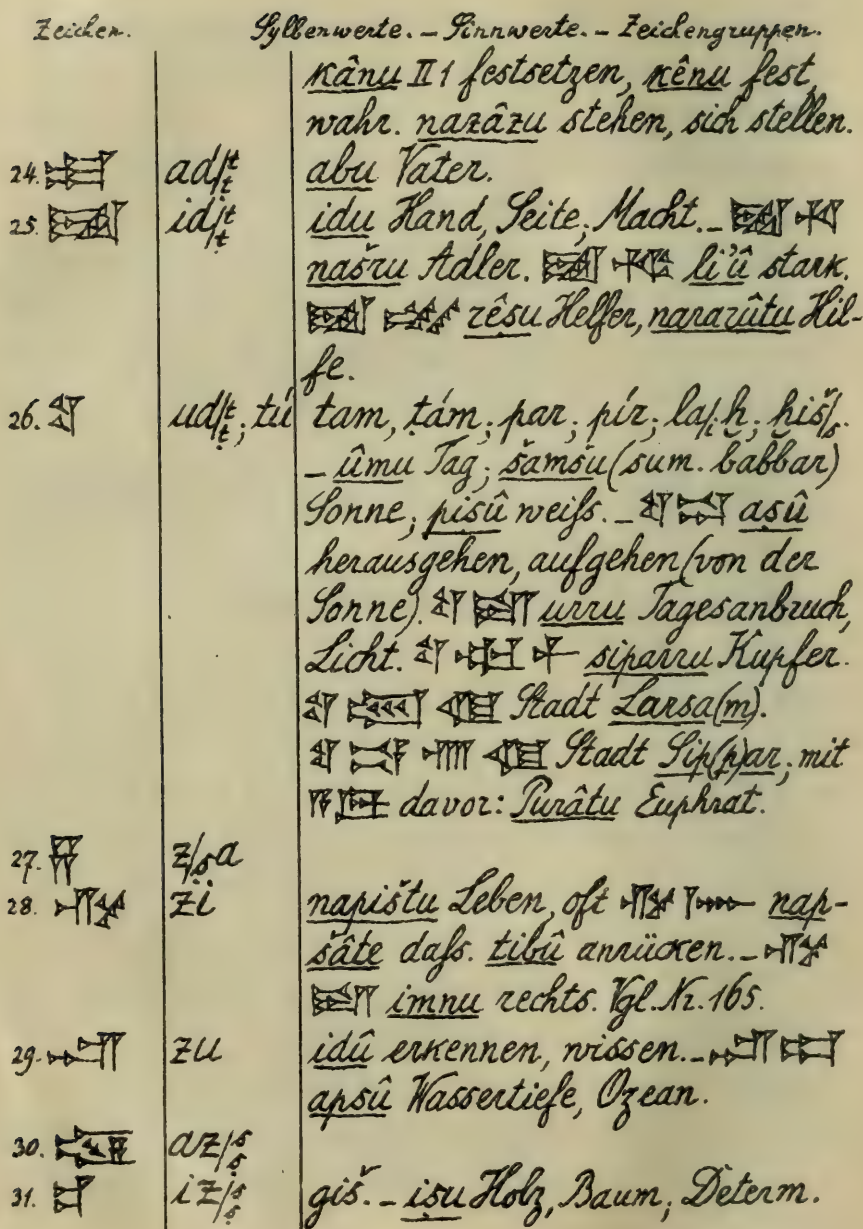 Zeichen. Sylbenwerte. – Sinnwerte. – Zeichengruppen.
kânu II 1 festsetzen, kênu fest,
wahr. nazâzu stehen, sich stellen.
24. 𒀜 ad/t/ṭ abu Vater.
25. 𒀉 id/t/ṭ idu Hand, Seite, Macht. – 𒀉
našru Adler. 𒀉 li'û stark.
𒀉 rêṣu Helfer, nararûtu Hil-
fe.
26. 𒌓 ud/t/ṭ; tú tam, ṭám; par; pír; la/iḫ; ḫiš/s.
– ûmu Tag; šamšu (sum. babbar)
Sonne; piṣû weiß. – 𒌓𒁺 aṣû
herausgehen, aufgehen (von der
Sonne). 𒌓 urru Tagesanbruch,
Licht. 𒌓𒅗𒁇 siparru Kupfer.
𒌓𒀕𒆠 Stadt Larsa(m).
𒌓𒄒𒉣𒆠 Stadt Sip(p)ar; mit
𒀀𒇉 davor: Purâtu Euphrat.
27. 𒍝 z/ṣa
28. 𒍣 zi napištu Leben, oft 𒍣𒈨𒌍 nap-
šâte daſs. tibû anrücken. – 𒍣
𒁕 imnu rechts. Vgl. Nr. 165.
29. 𒍪 zu idû erkennen, wissen. – 𒍪𒀊
apsû Wassertiefe, Ozean.
30. 𒊍 az/s/ṣ
31. 𒄑 iz/s/ṣ giš. – iṣu Holz, Baum; Determ.